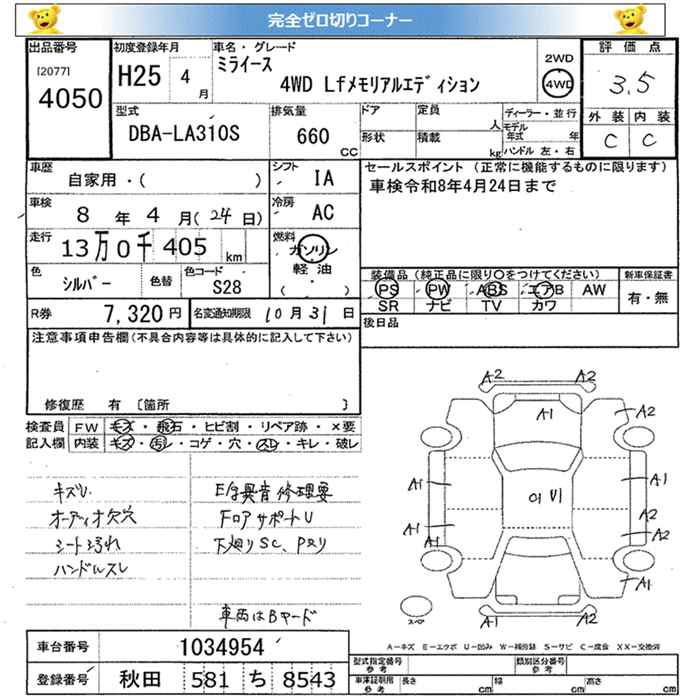 完全ゼロ切りコーナー
出品番号
[2077]
4050
初度登録年月
H25 4月
車名・グレード
ミライース
4WD Lfメモリアルエディション
2WD
4WD
評価点
3.5
外装 内装
C C
型式
DBA-LA310S
排気量
660
CC
ドア
形状
定員
人
積載
kg
ディーラー・並行
モデル年式 年
ハンドル 左・右
車歴
自家用・( )
シフト
IA
セールスポイント (正常に機能するものに限ります)
車検令和8年4月24日まで
車検
8年 4月(24日)
冷房
AC
走行
13万0千405km
燃料
ガソリン
軽油
( ・ )
色
シルバー
色替
色コード
S28
装備品 (純正品に限り○をつけてください)
PS PW ABS エアB AW
SR ナビ TV カワ
新車保証書
有・無
R券
7,320円
名変通知期限 10月31日
後日品
注意事項申告欄(不具合内容等は具体的に記入して下さい)
修復歴 有 〔箇所 〕
検査員記入欄
FW キズ・飛石・ヒビ割・リペア跡・×要
内装 キズ・汚レ・コゲ・穴・スレ・キレ・破レ
キズU
オーディオ欠穴
シート汚れ
ハンドルスレ
E/g異音修理要
FロアサポートU
下廻りSC、Pスリ
車両はBヤード
A2 A2
A1
A2
A1 A1
A2
A1 A1
A2
01 U1
A1
A2 A2
スペア
A-キズ E-エクボ U-凹み W-補修跡 S-サビ C-腐食 XX-交換済
車台番号
1034954
登録番号
秋田 581 ち 8543
型式指定番号
参考
類別区分番号
参考
車庫証明用
参考
長さ cm
幅 cm
高さ cm